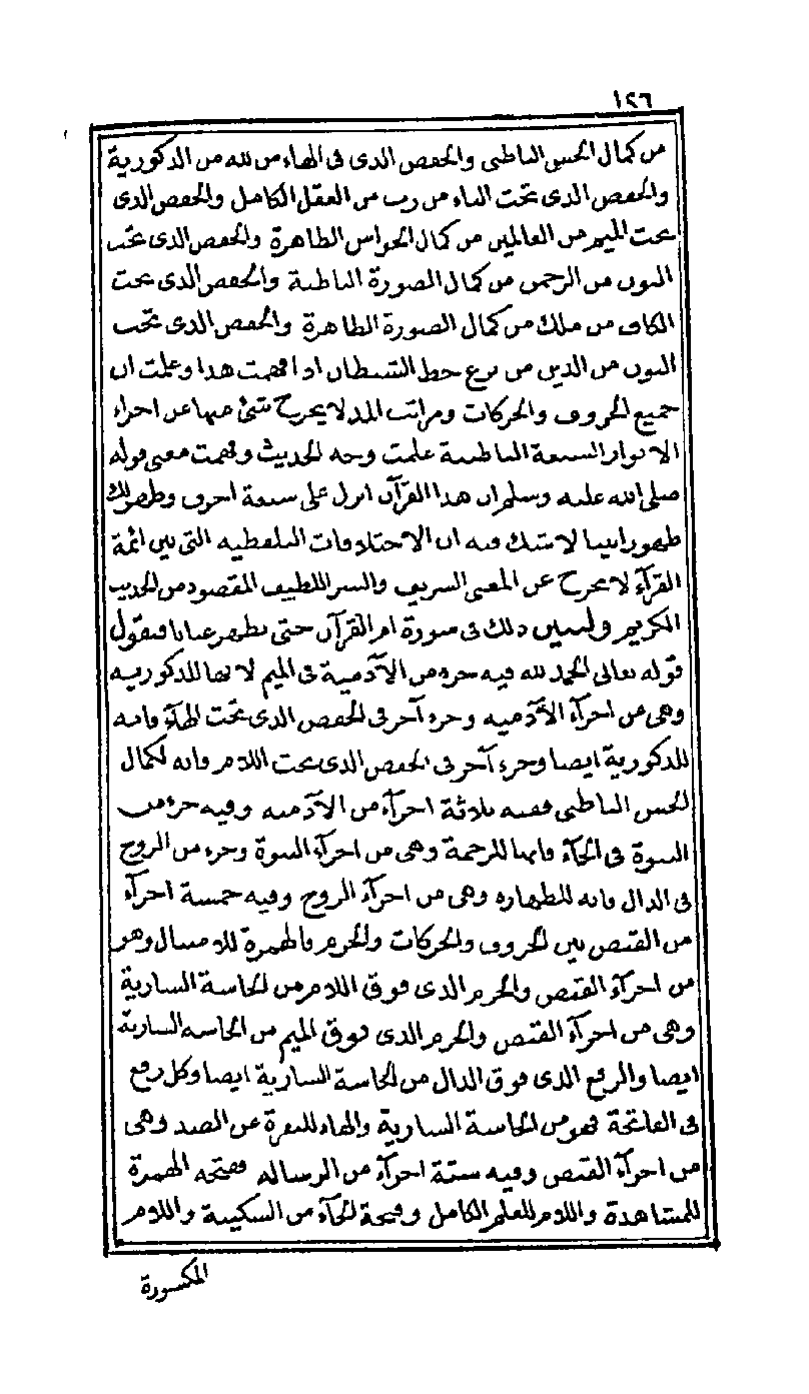 ١٢٦
من كمال الحس الباطنى والخفض الذى فى الهاء من لله من الذكورية
والخفض الذى تحت الباء من رب من العقل الكامل والخفض الذى
تحت الميم من العالمين من كمال الحواس الظاهرة والخفض الذى تحت
النون من الرحمن من كمال الصورة الباطنة والخفض الذى تحت
الكاف من ملك من كمال الصورة الظاهرة والخفض الذى تحت
النون من الدين من نزع حظ الشيطان اذا فهمت هذا وعلمت ان
جميع الحروف والحركات ومراتب المد لا يخرج شئ منها عن اجزاء
الانوار السبعة الباطنية علمت وجه الحديث وفهمت معنى قوله
صلى الله عليه وسلم ان هذا القرآن انزل على سبعة احرف وظهر لك
ظهورا بينا لا شك فيه ان الاختلافات التلفظيه التى بين ائمة
القرآء لا يخرج عن المعنى الشريف والسر اللطيف المقصود من الحديث
الكريم ولنبين ذلك فى سورة ام القرآن حتى يظهر عيانا فنقول
قوله تعالى الحمد لله فيه جزء من الآدمية فى الميم لانها للذكوريه
وهى من اجزآء الآدميه وجزء آخر فى الخفض الذى تحت الهآء فانه
للذكورية ايضا وجزء آخر فى الخفض الذى تحت اللام فانه لكمال
الحس الباطنى ففيه ثلاثة اجزآء من الآدميه وفيه جزء من
النبوة فى الحآء فانها للرحمة وهى من اجزآء النبوة وجزء من الروح
فى الدال فانه للطهاره وهى من اجزآء الروح وفيه خمسة اجزآء
من القبض بين الحروف والحركات والجزم فالهمزة للامتثال وهو
من اجزآء القبض والجزم الذى فوق اللام من الحاسة السارية
وهى من اجزآء القبض والجزم الذى فوق الميم من الحاسه السارية
ايضا والرفع الذى فوق الدال من الحاسة السارية ايضا وكل رفع
فى الفاتحة فهو من الحاسة السارية والهاء للنفرة عن الضد وهى
من اجزآء القبض وفيه ستة اجزآء من الرساله ففتحه الهمزة
للمشاهدة واللام للعلم الكامل وفتحة الحآء من السكينة واللام
المكسورة